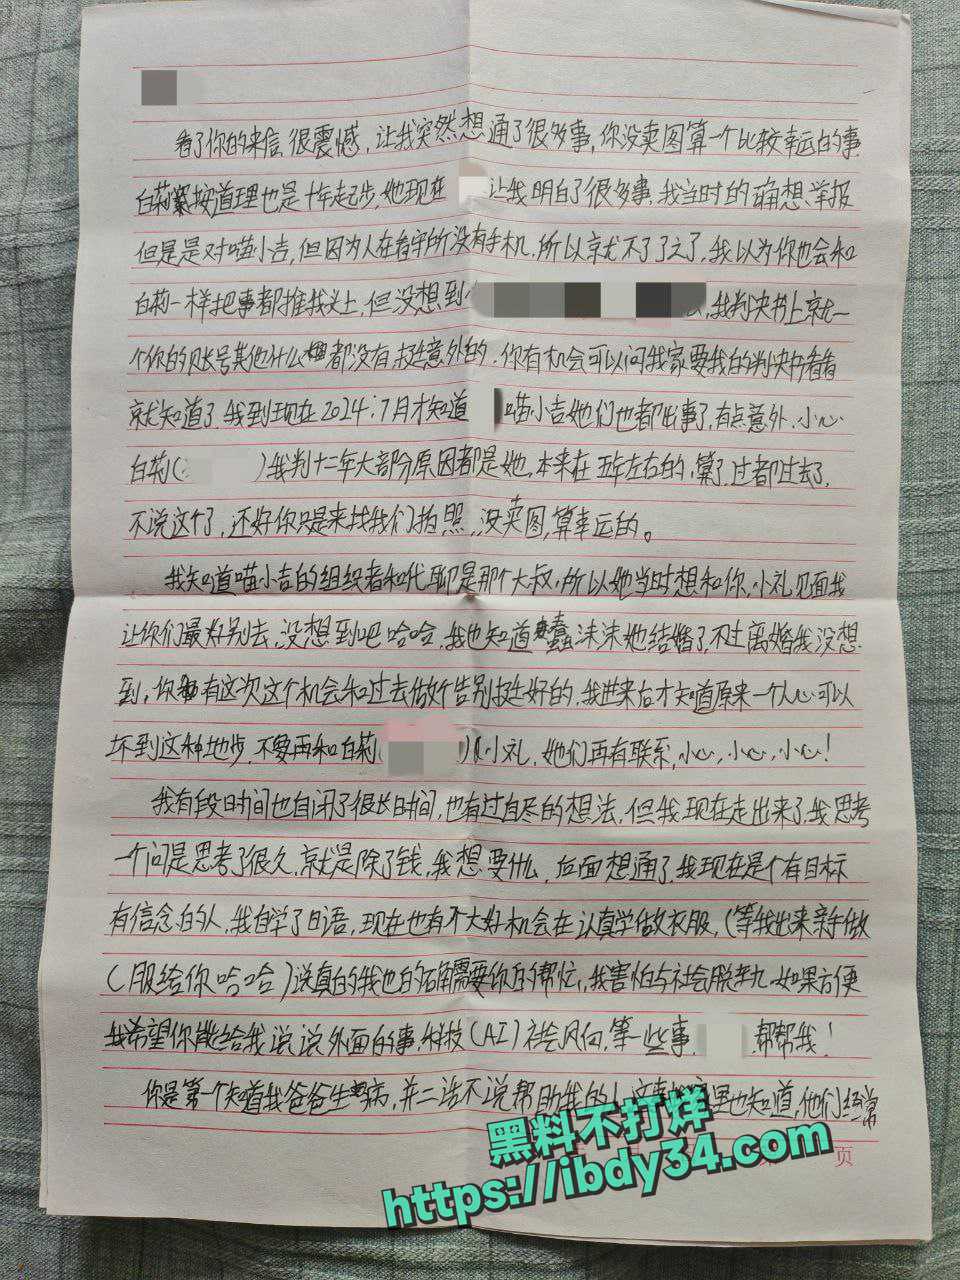 看了你的来信 很震憾，让我突然想通了很多事，你没卖图算一个比较幸运的事
白莉按道理也是十年起步，她现在 让我明白了很多事，我当时的确想举报
但是是对喵小吉，但因为人在看守所没有手机，所以就不了了之了，我以为你也会和
白莉一样把事都推我头上，但没想到 ，我判决书上就一
个你的账号其他什么都没有，挺意外的，你有机会可以问我家要我的判决书看看
就知道了，我到现在2024:7月才知道 喵小吉她们也都出事了，有点意外，小心
白莉( )我判十二年大部分原因都是她，本来在五年左右的，算了，过都过去了，
不说这个了，还好你只是来找我们拍照，没卖图，算幸运的。
我知道喵小吉的组织者和代聊是那个大叔，所以她当时想和你，小礼见面我
让你们最好别去，没想到吧哈哈，我也知道蠢沫沫她结婚了，不过离婚我没想
到，你有这次这个机会和过去做个告别挺好的，我进来后才知道原来一个人心可以
坏到这种地步，不要再和白莉( )小礼，她们再有联系，小心，小心，小心！
我有段日时间也自闭了很长时间，也有过自尽的想法，但我现在走出来了，我思考
一个问是思考了很久，就是除了钱，我想要什么，后面想通了，我现在是个有目标
有信念的人，我自学了日语，现在也有不大好机会在认真学做衣服，(等我出来亲手做
服给你哈哈)说真的我也的确需要你的帮忙，我害怕与社会脱节，如果方便
我希望你能给我说说外面的事，科技(AI)社会风向，等一些事， ，帮帮我！
你是第一个知道我爸爸生病，并二话不说帮助我的人，这事我家里也知道，他们经常
页
黑料不打烊
https://ibdy34.com